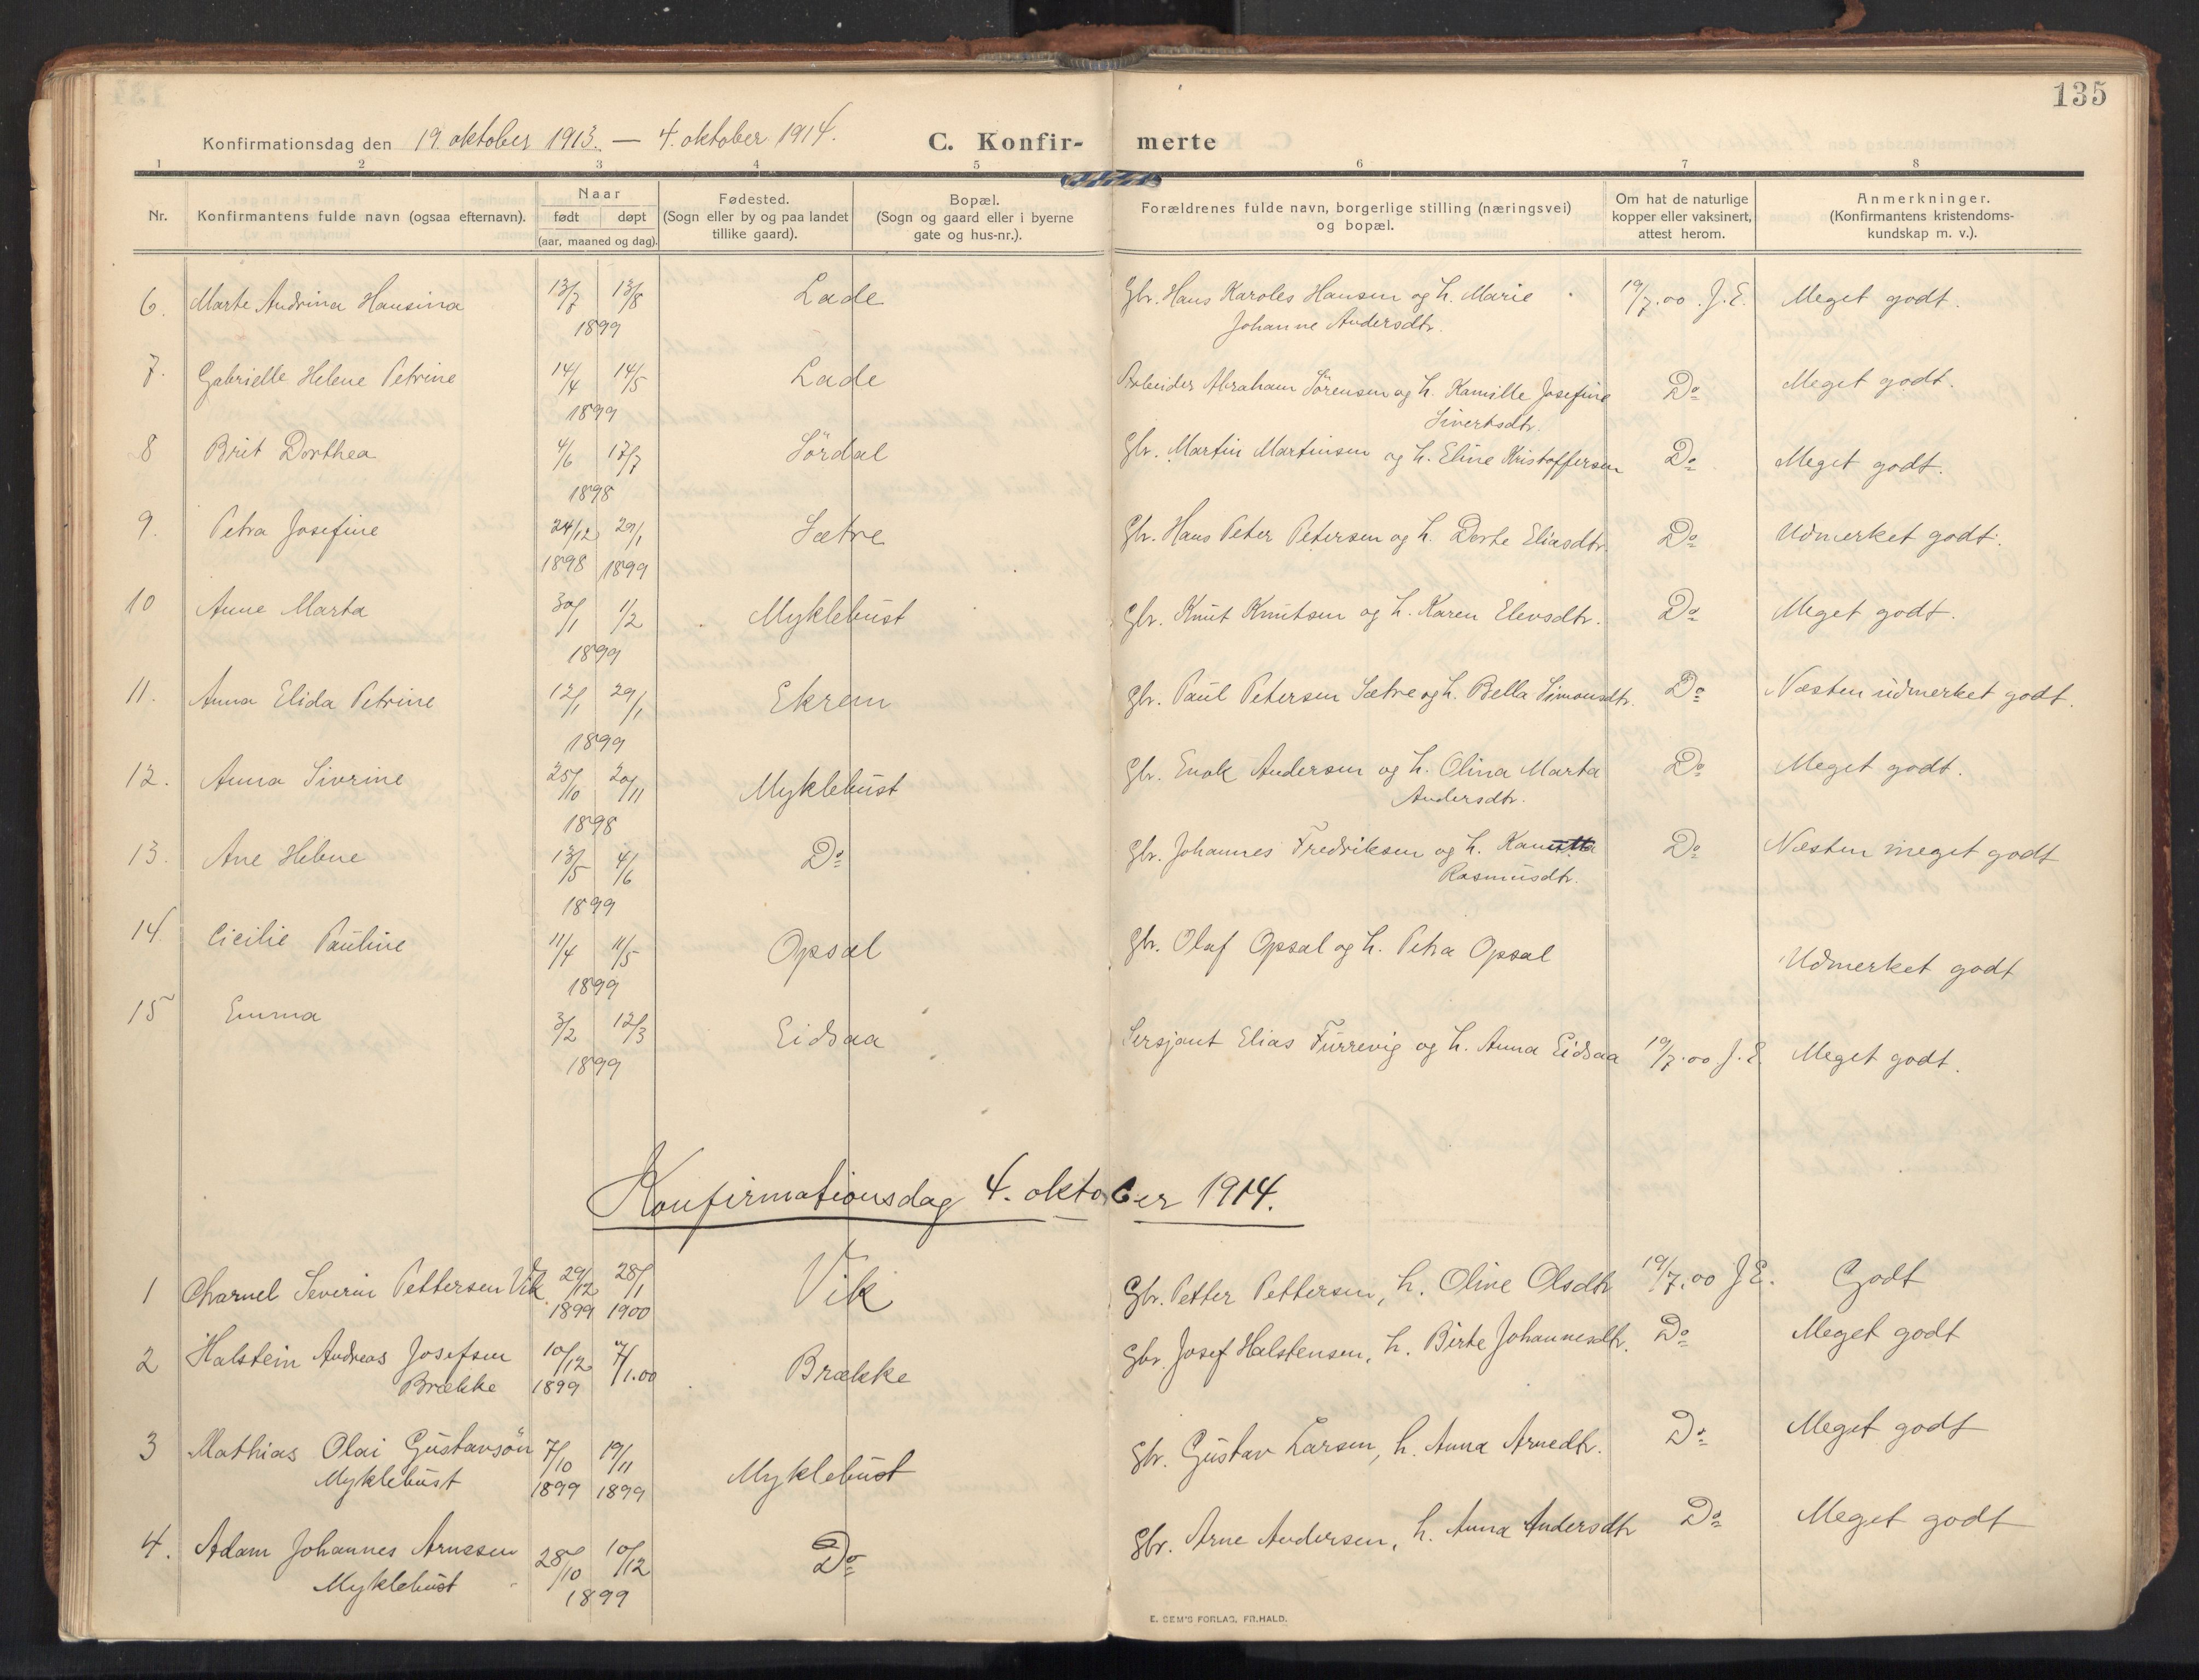 135
Konfirmationsdag den 19. oktober 1913. — 4. oktober 1914. C. Konfir- merte
1 2 3 4 5 6 7 8
Nr. Konfirmantens fulde navn (ogsaa efternavn). Naar født døpt (aar, maaned og dag). Fødested. (Sogn eller by og paa landet tillike gaard). Bopæl. (Sogn og gaard eller i byerne gate og hus-nr.). Forældrenes fulde navn, borgerlige stilling (næringsvei) og bopæl. Om hat de naturlige kopper eller vaksinert, attest herom. Anmerkninger. (Konfirmantens kristendoms-kundskap m. v.).
6. Marte Andrina Hansina 13/7 13/8 Lade Gbr. Hans Karoles Hansen og h. Marie 19/7.00. J.E. Meget godt.
1899 Johanne Andersdtr.
7. Gabrielle Helene Petrine 14/4 14/5 Lade Arbeider Abraham Sörensen og h. Kamille Josefine Do Meget godt.
1899 Sivertsdtr.
8 Brit Dorthea 4/6 17/7 Sördal Gbr. Martin Martinsen og h. Eline Kristoffersen Do Meget godt.
1898
9. Petra Josefine 24/12 29/1 Sætre Gbr. Hans Peter Petersen og h. Dorte Eliasdtr. Do Udmerket godt.
1898 1899
10 Anne Marta 30/1 1/2 Myklebust Gbr. Knut Knutsen og h. Karen Elevsdtr. Do Meget godt.
1899
11. Anna Elida Petrine 12/1 29/1 Ekrem Gbr. Paul Petersen Sætre og h. Bella Simonsdtr. Do Næsten udmerket godt.
1899
12. Anna Sivrine 25/10 20/11 Myklebust Gbr. Enok Andersen og h. Olina Marta Do Meget godt.
1898 Andersdtr.
13. Ane Helene 13/5 4/6 Do Gbr. Johannes Fredriksen og h. Do Næsten meget godt
1899 Rasmusdtr.
14. Cicilie Pauline 11/4 11/5 Opsal Gbr. Olaf Opsal og h. Petra Opsal Udmerket godt
1899
15 Emma 3/2 12/3 Eidsaa Sersjant Elias Furrevig og h. Anna Eidsaa 19/7.00 J.E. Meget godt.
1899
Konfirmationsdag 4. oktober 1914.
1 Charnel Severin Pettersen Vik 29/12 28/1 Vik Gbr. Petter Pettersen, h. Oline Olsdtr 19/7.00 J.E. Godt
1899 1900
2 Halstein Andreas Josefsen 10/12 7/1.00 Brække Gbr. Josef Halstensen, h. Birte Johannesdtr. Do Meget godt
Brække 1899
3 Mathias Olai Gustavsön 7/10 19/11 Myklebust Gbr. Gustav Larsen, h. Anna Arnedtr. Do Meget godt
Myklebust 1899 1899
4. Adam Johannes Arnesen 28/10 10/12 Do Gbr. Arne Andersen, h. Anna Andersdtr Do Meget godt
Myklebust 1899
E. SEM'S FORLAG, FR.HALD.